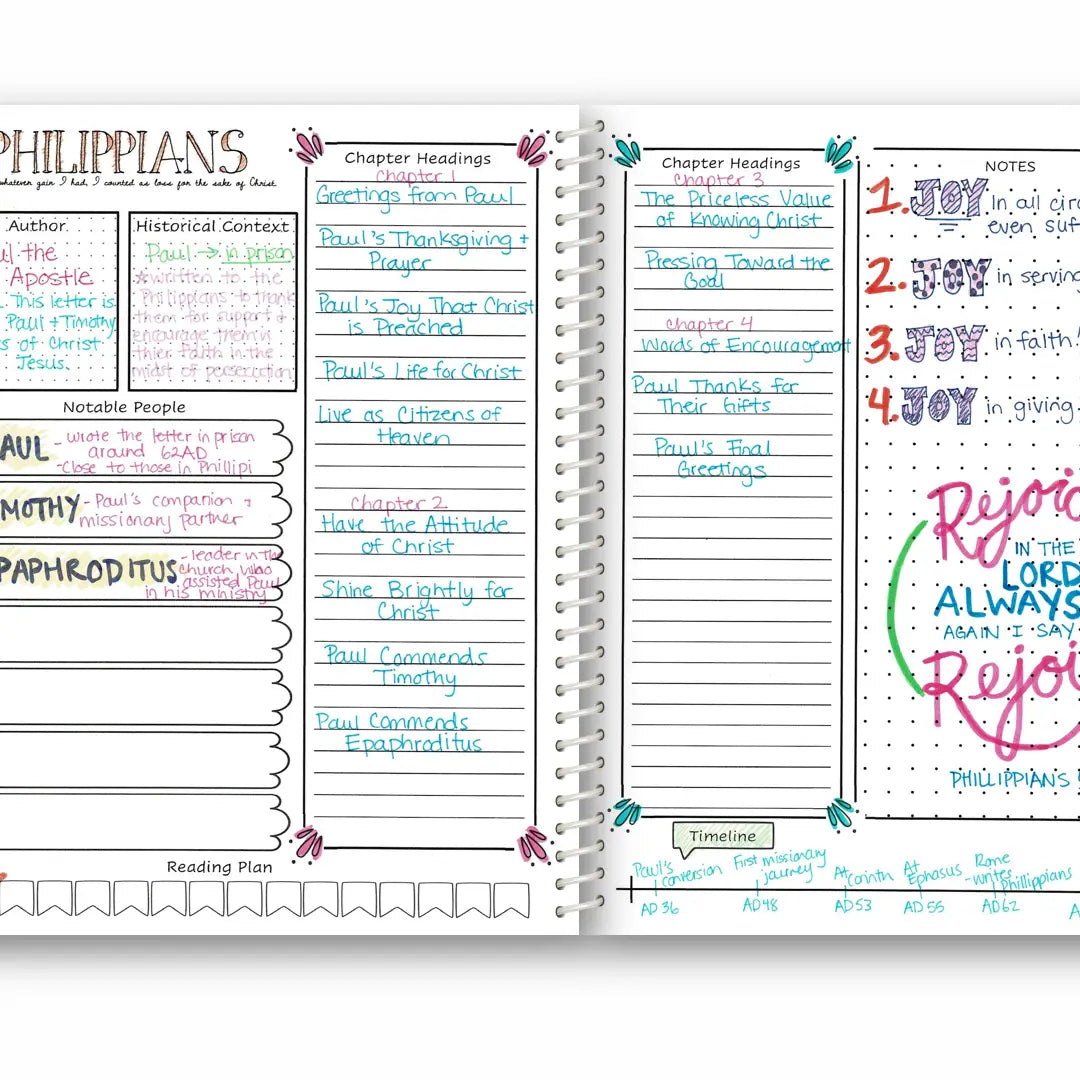 PHILIPPIANS
whatever gain I had, I counted as loss for the sake of Christ.
Author
ul the
Apostle
This letter is
Paul + Timothy
s of Christ
Jesus.
Historical Context
Paul → in prison
*written to the
Philippians to thank
them for support &
encourage them in
thier faith in the
midst of persecution
Notable People
AUL - wrote the letter in prison
around 62AD
-Close to those in Phillipi
MOTHY - Paul's companion &
missionary partner
PAPHRODITUS - leader in the
church, who
assisted Paul
in his ministry
Reading Plan
Chapter Headings
Chapter 1
Greetings from Paul
Paul's Thanksgiving +
Prayer
Paul's Joy That Christ
is Preached
Paul's Life for Christ
Live as Citizens of
Heaven
Chapter 2
Have the Attitude
of Christ
Shine Brightly for
Christ
Paul Commends
Timothy
Paul Commends
Epaphroditus
Chapter Headings
Chapter 3
The Priceless Value
of Knowing Christ
Pressing Toward the
Goal
Chapter 4
Words of Encouragement
Paul Thanks for
Their Gifts
Paul's Final
Greetings
NOTES
1. JOY in all circ
even suf
2. JOY in serving
3. JOY in faith!
4. JOY in giving.
Rejoic
IN THE
LORD
ALWAYS
AGAIN I SAY
Rejoi
PHILLIPPIANS
Timeline
Paul's
conversion
First missionary
journey
At Corinth
At
Ephasus
Rome
-writes
Phillippians
AD 36
AD 48
AD 53
AD 55
AD 62
A